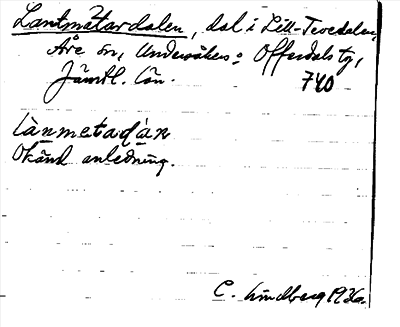 Lantmätardalen, dal i Lill-Tevedalen,
Åre sn, Undersåkers o Offerdals tg,
Jämtl. län. 740
lànmetaḍàn
Okänd anledning.
C. Lindberg 1936.